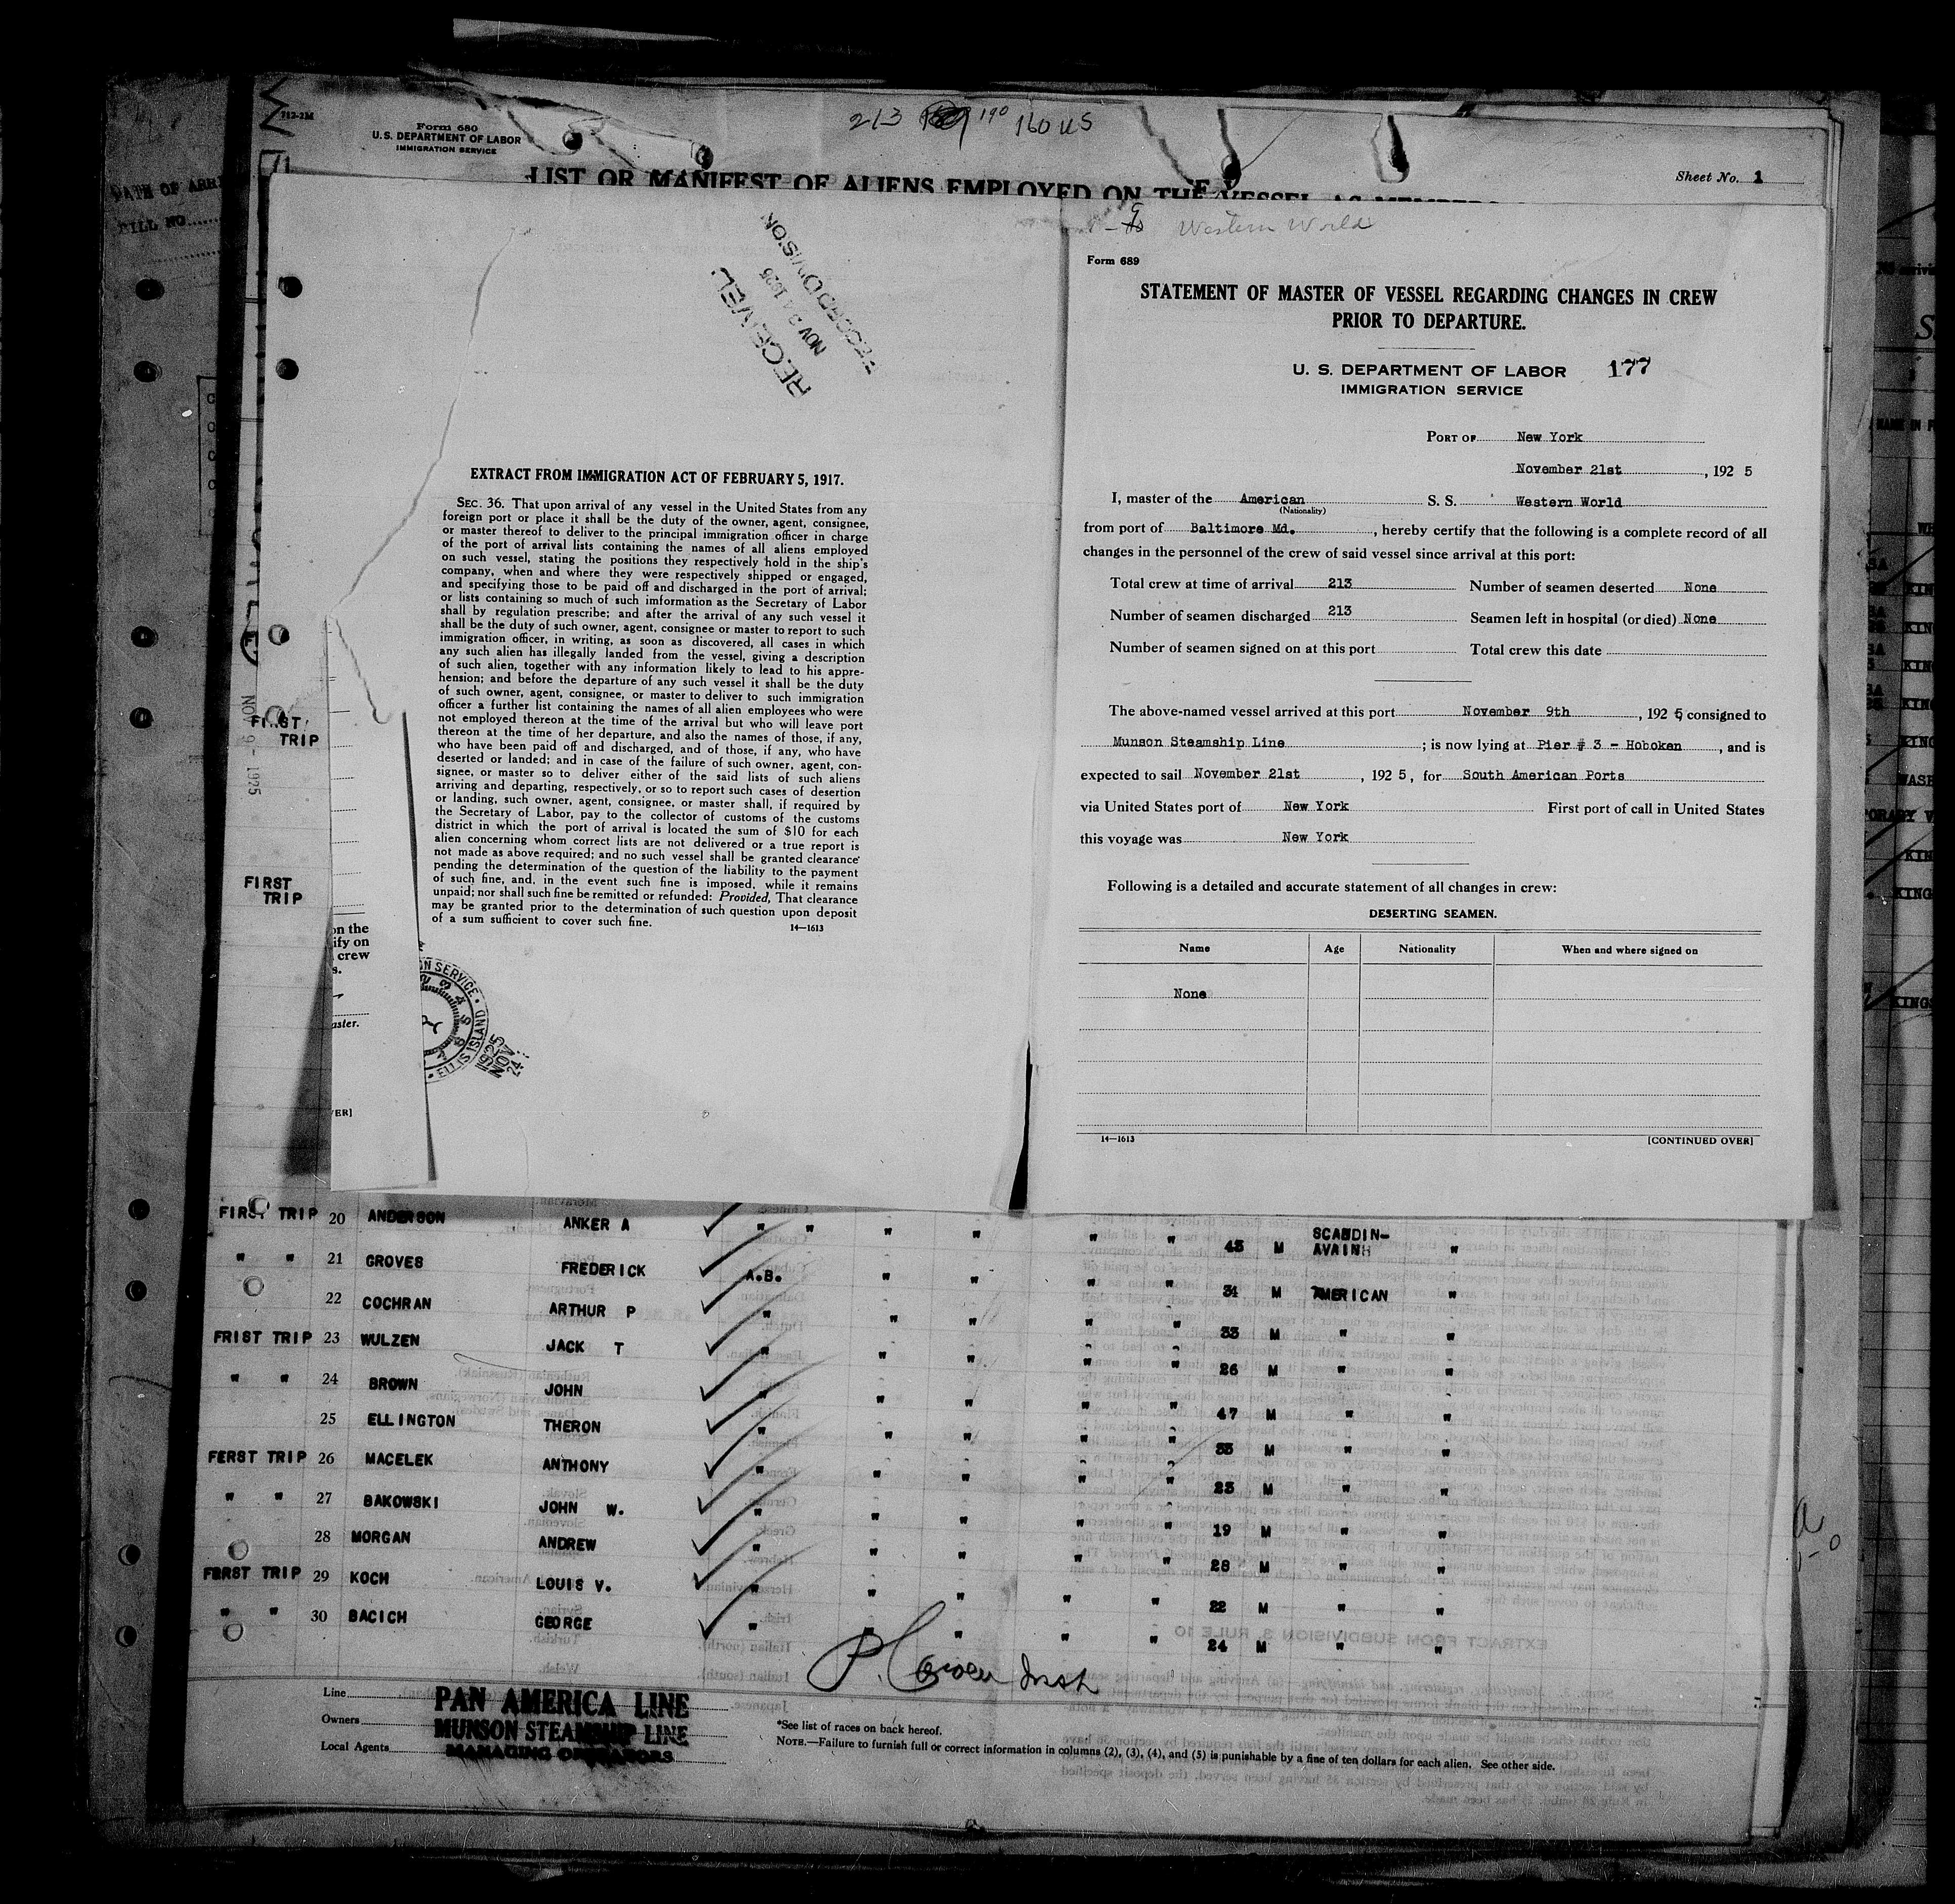 712-2M
Form 680
U.S. DEPARTMENT OF LABOR
IMMIGRATION SERVICE
213 190 160 US
Sheet No. 1
LIST OR MANIFEST OF ALIENS EMPLOYED ON THE VESSEL AS MEMBERS
RECEIVED
NOV 24 1925
RECORD DIVISION
EXTRACT FROM IMMIGRATION ACT OF FEBRUARY 5, 1917.
SEC. 36. That upon arrival of any vessel in the United States from any
foreign port or place it shall be the duty of the owner, agent, consignee,
or master thereof to deliver to the principal immigration officer in charge
of the port of arrival lists containing the names of all aliens employed
on such vessel, stating the positions they respectively hold in the ship's
company, when and where they were respectively shipped or engaged,
and specifying those to be paid off and discharged in the port of arrival;
or lists containing so much of such imformation as the Secretary of Labor
shall by regulation prescribe; and after the arrival of any such vessel it
shall be the duty of such owner, agent, consignee or master to report to such
immigration officer, in writing, as soon as discovered, all cases in which
any such alien has illegally landed from the vessel, giving a description
of such alien, together with any information likely to lead to his appre-
hension; and before the departure of any such vessel it shall be the duty
of such owner, agent, consignee, or master to deliver to such immigration
officer a further list containing the names of all alien employees who were
not employed thereon at the time of the arrival but who will leave port
thereon at the time of her departure, and also the names of those, if any,
who have been paid off and discharged, and of those, if any, who have
deserted or landed; and in case of the failure of such owner, agent, con-
signee, or master so to deliver either of the said lists of such aliens
arriving and departing, respectively, or so to report such cases of desertion
or landing, such owner, agent, consignee, or master shall, if required by
the Secretary of Labor, pay to the collector of customs of the customs
district in which the port of arrival is located the sum of $10 for each
alien concerning whom correct lists are not delivered or a true report is
not made as above required; and no such vessel shall be granted clearance
pending the determination of the question of the liability to the payment
of such fine, and, in the event such fine is imposed, while it remains
unpaid; nor shall such fine be remitted or refunded: Provided, That clearance
may be granted prior to the determination of such question upon deposit
of a sum sufficient to cover such fine.
14—1613
ELLIS ISLAND
1925 NOV 24
Western World
Form 689
STATEMENT OF MASTER OF VESSEL REGARDING CHANGES IN CREW
PRIOR TO DEPARTURE.
U. S. DEPARTMENT OF LABOR 177
IMMIGRATION SERVICE
PORT OF New York
November 21st, 192 5
I, master of the American S. S. Western World
(Nationality)
from port of Baltimore Md., hereby certify that the following is a complete record of all
changes in the personnel of the crew of said vessel since arrival at this port:
Total crew at time of arrival 213 Number of seamen deserted None
Number of seamen discharged 213 Seamen left in hospital (or died) None
Number of seamen signed on at this port Total crew this date
The above-named vessel arrived at this port November 9th, 192 5 consigned to
Munson Steamship Line; is now lying at Pier # 3 - Hoboken, and is
expected to sail November 21st, 192 5, for South American Ports
via United States port of New York First port of call in United States
this voyage was New York
Following is a detailed and accurate statement of all changes in crew:
DESERTING SEAMEN.
Name Age Nationality When and where signed on
None
14—1613 [CONTINUED OVER]
NOV 9 - 1925
FIRST
TRIP
FIRST
TRIP
on the
ify on
crew
s.
aster.
VER]
FIRST TRIP 20 ANDERSON ANKER A " " " " " " 43 M SCANDIN-
AVAINH "
" " 21 GROVES FREDERICK A.B. " " " " 34 M AMERICAN "
22 COCHRAN ARTHUR P " " " " " 33 M " "
FRIST TRIP 23 WULZEN JACK T " " " " " 26 M " "
" " 24 BROWN JOHN " " " " " 47 M " "
25 ELLINGTON THERON " " " " " 33 M " "
FERST TRIP 26 MACELEK ANTHONY " " " " " 23 M " "
" " 27 BAKOWSKI JOHN W. " " " " " 19 M " "
28 MORGAN ANDREW " " " " " 28 M " "
FERRST TRIP 29 KOCH LOUIS V. " " " " " 22 M " "
" " 30 BACICH GEORGE " " " " " 24 M " "
Line PAN AMERICA LINE
Owners MUNSON STEAMSHIP LINE
Local Agents MANAGING OPERATORS
*See list of races on back hereof.
NOTE.—Failure to furnish full or correct information in columns (2), (3), (4), and (5) is punishable by a fine of ten dollars for each alien. See other side.